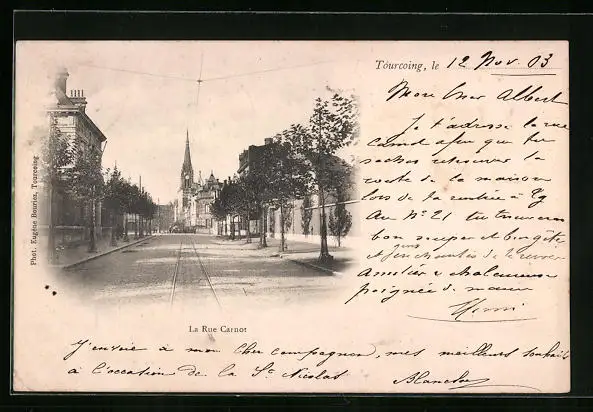 Tourcoing, le 12 Nov. 03
Mon cher Albert
Je t'adresse la rue
Carnot afin que tu
saches retrouver la
route de la maison
lors de ta rentrée à
Au N° 21 tu trouveras
bon souper et bon gîte
et gens de te revoir
Amitiés & chaleureuse
poignée de main
Henri
Phot. Eugène Bouriez, Tourcoing
La Rue Carnot
J'envoie à mon cher compagnon, mes meilleurs souhaits
à l'occasion de la St. Nicolas
Blanche